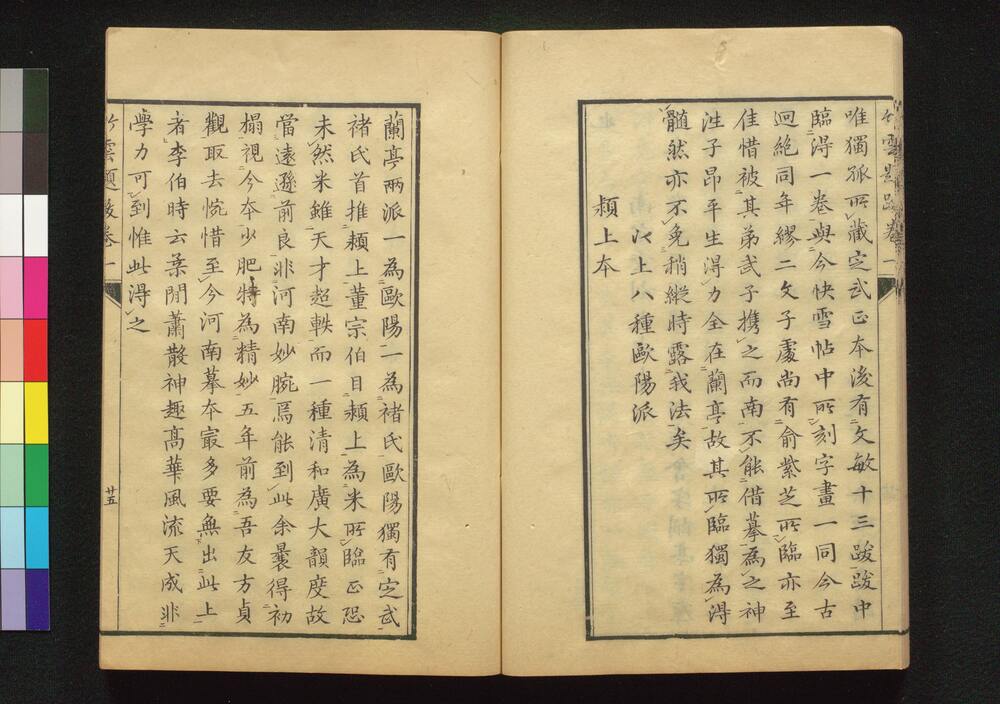 唯獨孤所藏定武正本後有文敏十三跋跋中
臨得一卷與今快雪帖中所刻字畫一同今古
迥絶同年繆二文子處尚有俞紫芝所臨亦至
佳惜被其弟武子携之而南不能借摹為之神
泩子昂平生得力全在蘭亭故其所臨獨為得
髓然亦不免稍縱時露我法矣
以上八種歐陽派
頴上本
蘭亭兩派一為歐陽一為褚氏歐陽獨有定武
褚氏首推頴上董宗伯目頴上為米所臨正恐
未然米雖天才超軼而一種清和廣大韻度故
當遠遜前良非河南妙腕焉能到此余曩得初
榻視今本少肥特為精妙五年前為吾友方貞
觀取去惋惜至今河南摹本㝡多要無出此上
者李伯時云柔閒蕭散神趣高華風流天成非
學力可到惟此得之
竹雲題跋卷一
廿五